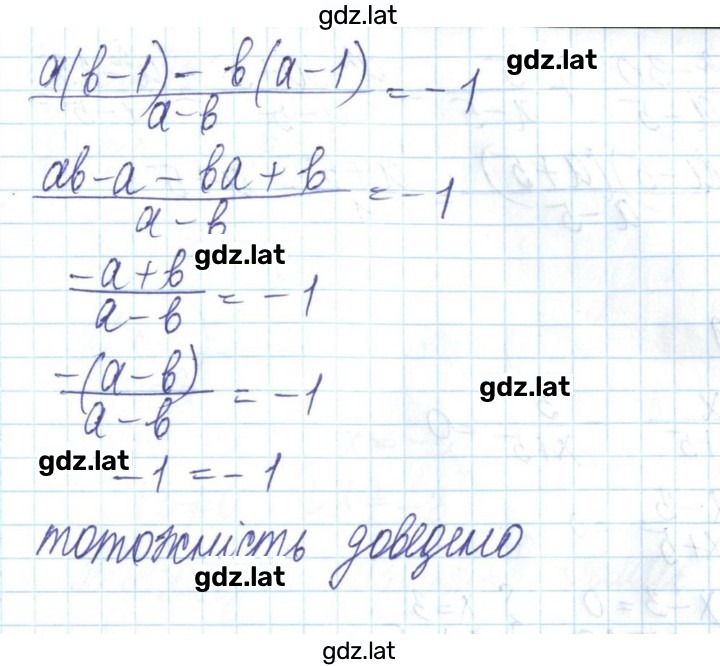 gdz.lat
a(b-1) - b(a-1) / a-b = -1
gdz.lat
ab-a-ba+b / a-b = -1
gdz.lat
-a+b / a-b = -1
-(a-b) / a-b = -1
gdz.lat
gdz.lat
-1 = -1
тотожність доведено
gdz.lat
gdz.lat